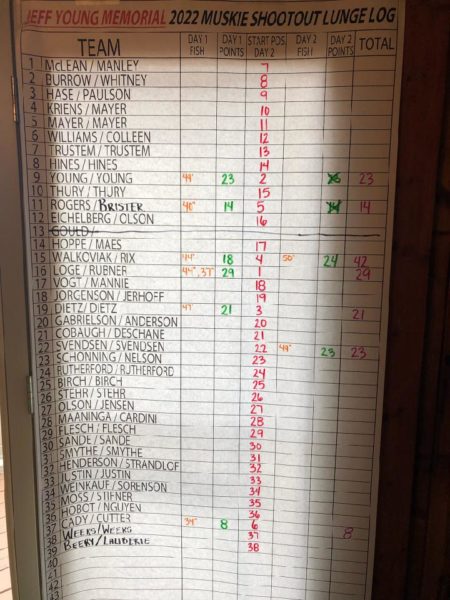 JEFF YOUNG MEMORIAL 2022 MUSKIE SHOOTOUT LUNGE LOG
TEAM DAY 1 FISH DAY 1 POINTS START POS. DAY 2 DAY 2 FISH DAY 2 POINTS TOTAL
1 McLEAN / MANLEY 7
2 BURROW / WHITNEY 8
3 HASE / PAULSON 9
4 KRIENS / MAYER 10
5 MAYER / MAYER 11
6 WILLIAMS / COLLEEN 12
7 TRUSTEM / TRUSTEM 13
8 HINES / HINES 14
9 YOUNG / YOUNG 49" 23 2 23
10 THURY / THURY 15
11 ROGERS / BRISTER 40" 14 5 14 14
12 EICHELBERG / OLSON 16
13 GOULD /
14 HOPPE / MAES 17
15 WALKOVIAK / RIX 44" 18 4 50" 24 42
16 LOGE / RUBNER 44", 37" 29 1 29
17 VOGT / MANNIE 18
18 JORGENSON / JERHOFF 19
19 DIETZ / DIETZ 47" 21 3 21
20 GABRIELSON / ANDERSON 20
21 COBAUGH / DESCHANE 21
22 SVENDSEN / SVENDSEN 22 49" 23 23
23 SCHONNING / NELSON 23
24 RUTHERFORD / RUTHERFORD 24
25 BIRCH / BIRCH 25
26 STEHR / STEHR 26
27 OLSON / JENSEN 27
28 MAANINGA / CARDINI 28
29 FLESCH / FLESCH 29
30 SANDE / SANDE 30
31 SMYTHE / SMYTHE 31
32 HENDERSON / STRANDLOF 32
33 JUSTIN / JUSTIN 33
34 WEINKAUF / SORENSON 34
35 MOSS / STIFNER 35
36 HOBOT / NGUYEN 36
37 CADY / CUTTER 34" 8 6 8
38 WEEKS / WEEKS 37
39 BEERY / LALIBERTE 38
40
41
42
43